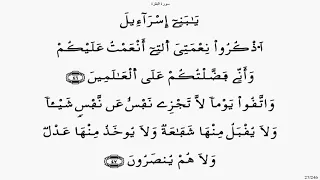 سورة البقرة
يَٰبَنِےٓ إِسْرَآءِيلَ
اَ۟ذْكُرُوا۟ نِعْمَتِيَ اَ۬لتِےٓ أَنْعَمْتُ عَلَيْكُمْ
وَأَنِّے فَضَّلْتُكُمْ عَلَى اَ۬لْعَٰلَمِينَ ٤٦
وَاتَّقُوا۟ يَوْماٗ لَّا تَجْزِے نَفْسٌ عَن نَّفْسٖ شَيْـٔاٗ
وَلَا يُقْبَلُ مِنْهَا شَفَٰعَةٞ وَلَا يُوخَذُ مِنْهَا عَدْلٞ
وَلَا هُمْ يُنصَرُونَ ٤٧
27/246